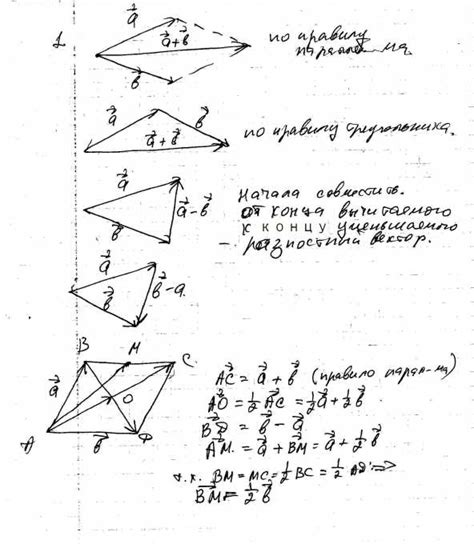 1
a⃗
a⃗+b⃗
b⃗
по правилу
паралл-ма
a⃗
b⃗
a⃗+b⃗
по правилу треугольника.
a⃗
a⃗-b⃗
b⃗
Начала совместить.
от конца вычитаемого
к концу уменьшаемого
- разностный вектор.
a⃗
b⃗
b⃗-a
B M C
a⃗
O
A b⃗ D
AC⃗ = a⃗ + b⃗ (правило парал-ма)
AO⃗ = ½ AC⃗ = ½a⃗ + ½b⃗
BD⃗ = b⃗ - a⃗
AM⃗ = a⃗ + BM⃗ = a⃗ + ½ b⃗
т.к. BM = MC = ½ BC = ½ AD ⇒
BM⃗ = ½ b⃗